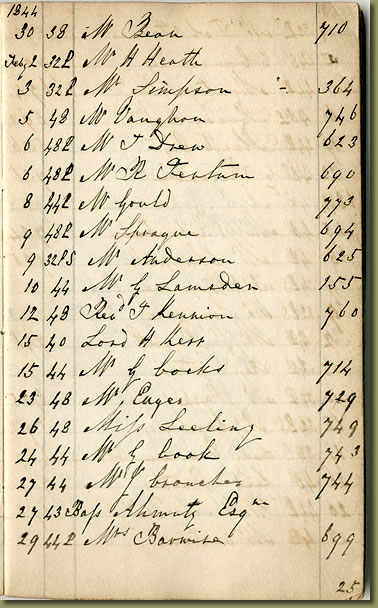 1844
30 38 Mr Bean 710
Feby 2 32P Mr H Heath
3 32P Mr Simpson 364
5 48 Mr Vaughon 746
6 48P Mr T Drew 623
6 48P Mr R Tentum 690
8 44P Mr Gould 773
9 48P Mr Sprague 694
9 32PS Mr Anderson 625
10 44 Mr G Lamsden 155
12 48 Revd T Kennion 760
15 40 Lord H Kerr
15 44 Mr G Cocks 714
23 48 Mr 729
26 48 Miss Leeling 749
24 44 Mr G Cook 743
27 44 Mr 744
27 43 Bass Schmutz Esqre
29 44P Mrs Barwise 699
25